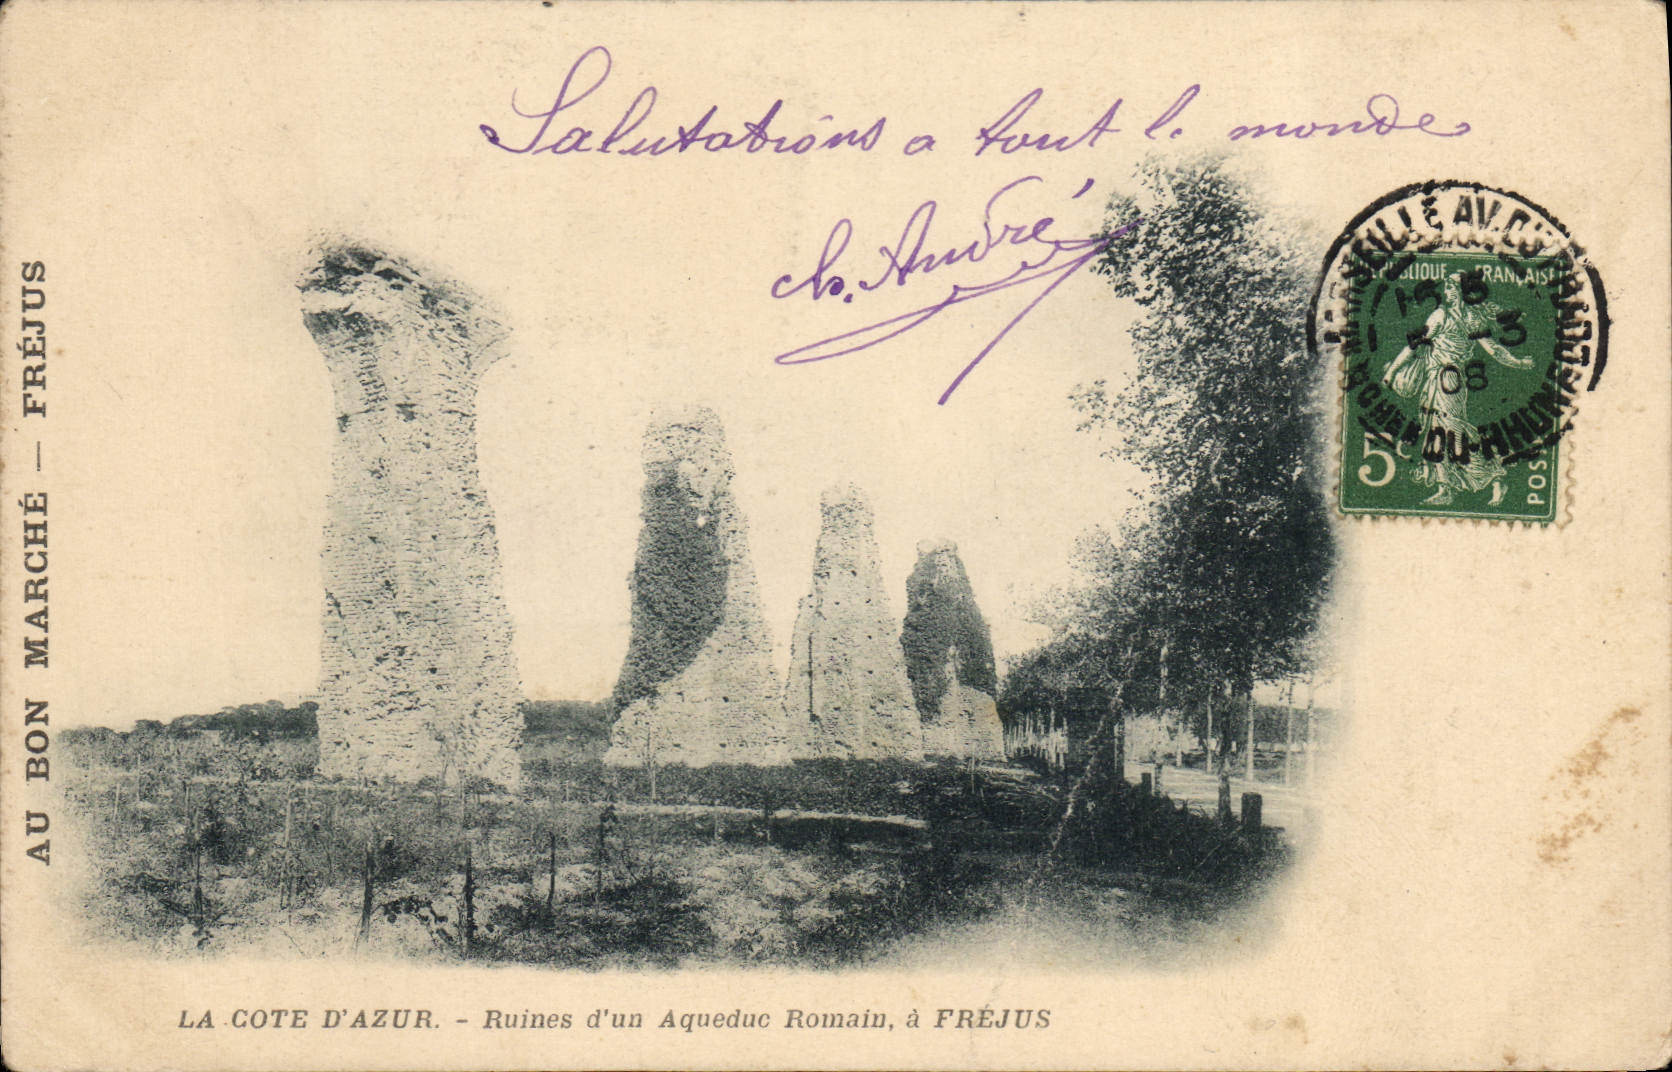 Salutations a tout l. monde
Ch. André
AU BON MARCHÉ — FRÉJUS
MARSEILLE AV. DU PRADO
BCHES DU-RHONE
5 -3
08
RÉPUBLIQUE FRANÇAISE
5c
POSTES
LA COTE D'AZUR. - Ruines d'un Aqueduc Romain, à FRÉJUS